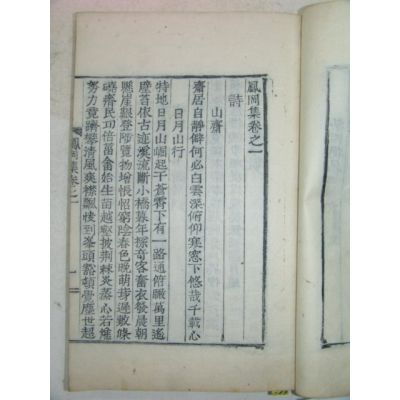 鳳岡集卷之一
詩
山齋
齋居自靜僻何必白雲深俯仰寒窓下悠哉千載心
日月山行
特地日月山崛起千蒼霄下有一路通俯瞰萬里遙
壁苔依古迹溪流斷小橋暮年探奇客奮衣發晨朝
懸崖艱登陟覽物增悵怊窮陰春色晚萌芽遲數條
磽齋民功倍菑畬始生苗越壑披荊棘炎蒸心若燋
努力竟躋攀清風爽襟飄到峯頭豁頓覺塵世超
鳳岡集卷之一
一